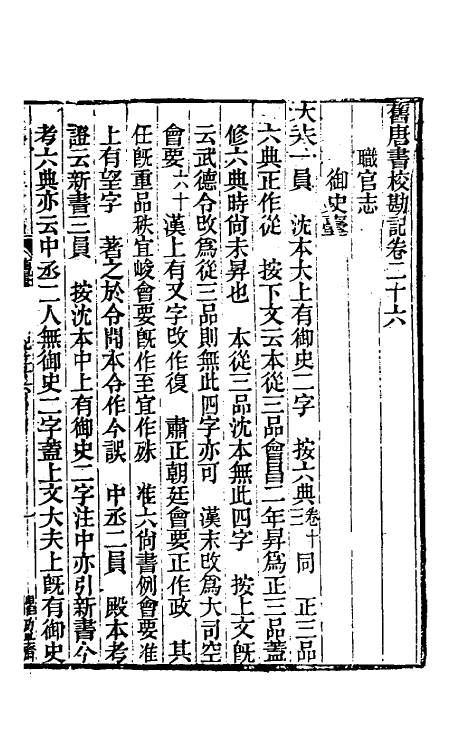 舊唐書校勘記卷二十六
職官志
御史臺
大夫一員　沈本大上有御史二字　按六典卷十三同　正三品
六典正作從　按下文云本從三品會昌二年昇爲正三品蓋
修六典時尙未昇也　本從三品沈本無此四字　按上文旣
云武德令改爲從三品則無此四字亦可　漢末改爲大司空
會要六十漢上有又字改作復　肅正朝廷會要正作政　其
任旣重品秩宜峻會要旣作至宜作殊　准六尙書例會要准
上有望字　著之於令閒本令作今誤　中丞二員　殿本考
證云新書三員　按沈本中上有御史二字注中亦引新書今
考六典亦云中丞二人無御史二字蓋上文大夫上旣有御史